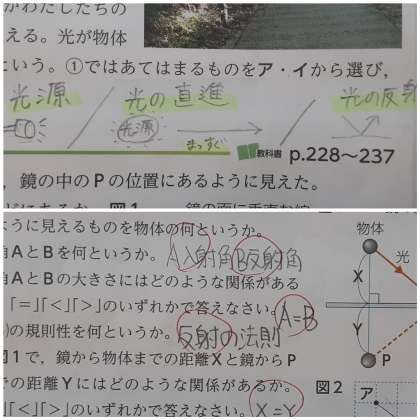 がわたしたちの
える。光が物体
という。①ではあてはまるものをア・イから選び，
光源 / 光の直進 / 光の反射
光源 まっすぐ
教科書 p.228〜237
，鏡の中のPの位置にあるように見えた。
図1
ように見えるものを物体の何というか。
物体
角AとBを何というか。 A入射角B反射角
光
角AとBの大きさにはどのような関係がある
X
「=」「<」「>」のいずれかで答えなさい。 A=B
の規則性を何というか。 反射の法則
Y
図1で，鏡から物体までの距離Xと鏡からP
P
での距離Yにはどのような関係があるか。
図2 ア
」「<」「>」のいずれかで答えなさい。 X=Y